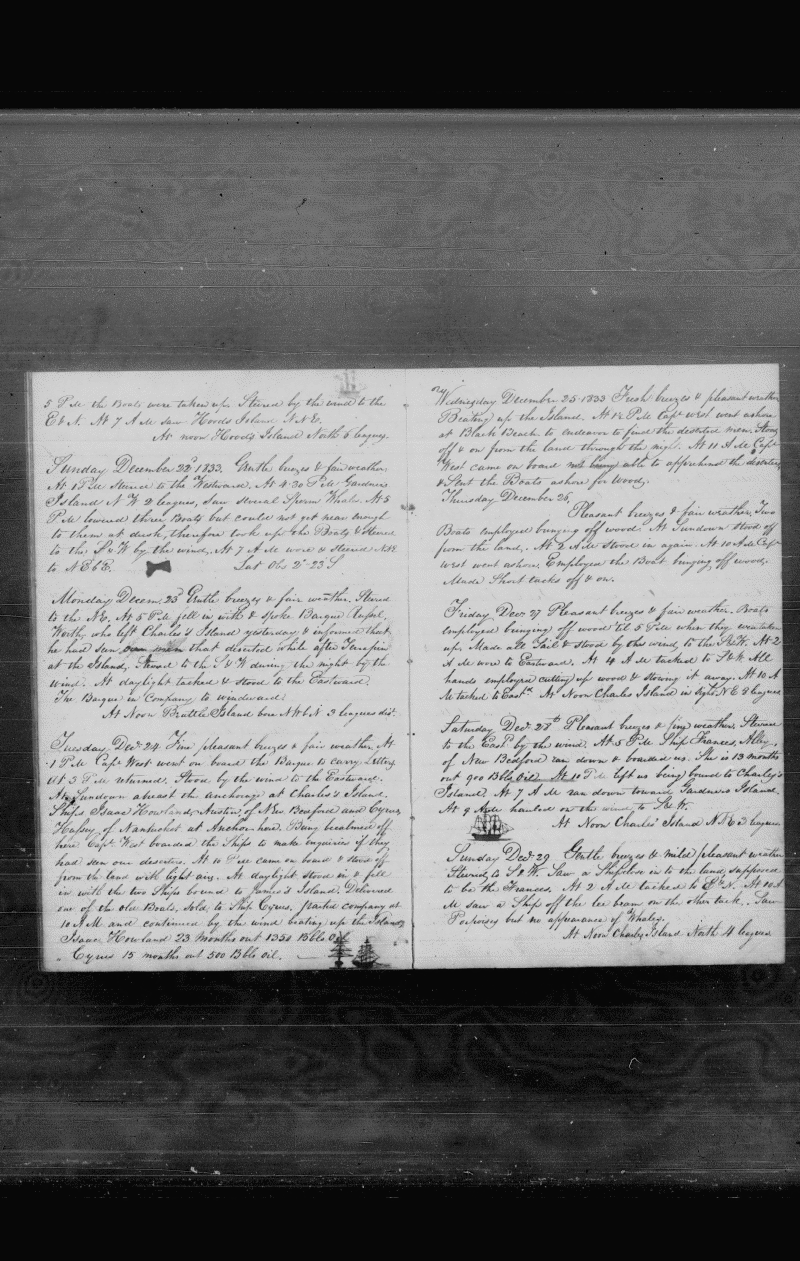 5 P M the Boats were taken up. Steered by the wind to the
E & N. At 7 A M saw Hoods Island N N E.
At noon Hoods Island North 6 leagues.
Sunday December 22d 1833. Gentle breezes & fair weather.
At 1 P M Steered to the Westward. At 4.30 P M Gardners
Island N W 2 leagues, Saw several Sperm Whales. At 5
P M lowered three Boats but could not get near enough
to them at dusk, therefore took up the Boats & steered
to the S & W by the wind. At 7 A M wore & steered NNE
to N E b E. Lat Obs 2° 23 S
Monday Decem. 23d Gentle breezes & fair weather. Stered
to the N E. At 5 P M fell in with & spoke Barque
Worth, who left Charles's Island yesterday & informed that
he had seen men that deserted while after Terapin
at the Island, Steered to the S & W during the night by the
wind. At daylight tacked & stood to the Eastward.
The Barque in Company to windward.
At Noon Brattle Island bore N W b N 3 leagues dist.
Tuesday Decr 24. Fine pleasant breezes & fair weather, At
1 P M Capt West went on board the Barque to carry Letters
At 3 P M returned. Stood by the wind to the Eastward.
At Sundown abreast the anchorage at Charles's Island.
Ships Isaac Howland, Austin, of New Bedford and Cyrus,
Hussey, of Nantucket at Anchor here. Being becalmed off
here Capt West boarded the Ships to make enquiries if they
had seen our deserters. At 10 P M came on board & stood off
from the land with light airs. At daylight stood in & fell
in with the two Ships bound to James's Island. Delivered
one of the old Boats, sold to Ship Cyrus, parted company at
10 A M and continued by the wind beating up the Island,
Isaac Howland 23 months out 1350 Bbls O
" Cyrus 15 months out 500 Bbls oil.
Wednesday December 25 1833 Fresh breezes & pleasant weather
Beating up the Island. At 1½ P M Capt West went ashore
at Black Beach to endeavor to find the deserted men. Stood
off & on from the land through the night. At 11 A M Capt
West came on board not being able to apprehend the deserters,
& Sent the Boats ashore for Wood.
Thursday December 26,
Pleasant breezes & fair weather, Two
Boats employed bringing off wood. At Sundown stood off
from the land. At 2 A M Stood in again. At 10 A M Capt
West went ashore. Employed the Boat bringing off wood.
Made Short tacks off & on.
Friday Decr 27 Pleasant breezes & fair weather. Boats
employed bringing off wood til 5 P M when they were taken
up. Made all Sail & stood by the wind to the S & W. At 2
A M wore to Eastward. At 4 A M tacked to S & W. All
hands employed cutting up wood & stowing it away. At 10 A
M tacked to Eastd. At Noon Charles Island in sight N E 8 leagues
Saturday Decr 28th Pleasant breezes & fine weather. Steered
to the Eastd by the wind. At 5 P M Ship Frances, Alley,
of New Bedford ran down & boarded us. She is 13 months
out 900 Bbls Oil. At 10 P M left us being bound to Charles's
Island. At 7 A M ran down toward Gardners Island.
At 9 A M hauled on the wind to S & W.
At Noon Charles' Island N N E 3 leagues
Sunday Decr 29 Gentle breezes & mild pleasant weather
Steered to S & W. Saw a Ship close in to the land, supposed
to be the Frances. At 2 A M tacked to E & N. At 10 A
M saw a Ship off the lee beam on the other tack. Saw
Porpoises but no appearance of Whales.
At Noon Charles Island North 4 leagues